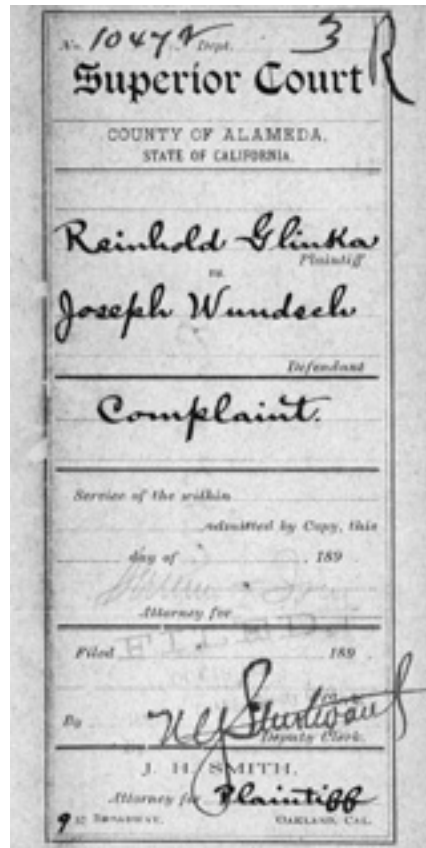 No. 10472 Dept. 3 R
Superior Court
COUNTY OF ALAMEDA,
STATE OF CALIFORNIA.
Reinhold Glinka
Plaintiff
vs.
Joseph Wundsch
Defendant
Complaint.
Service of the within
admitted by Copy, this
day of 189
Attorney for
FILED
Filed 189
By
Deputy Clerk.
J. H. SMITH,
Attorney for Plaintiff
BROADWAY, OAKLAND, CAL.